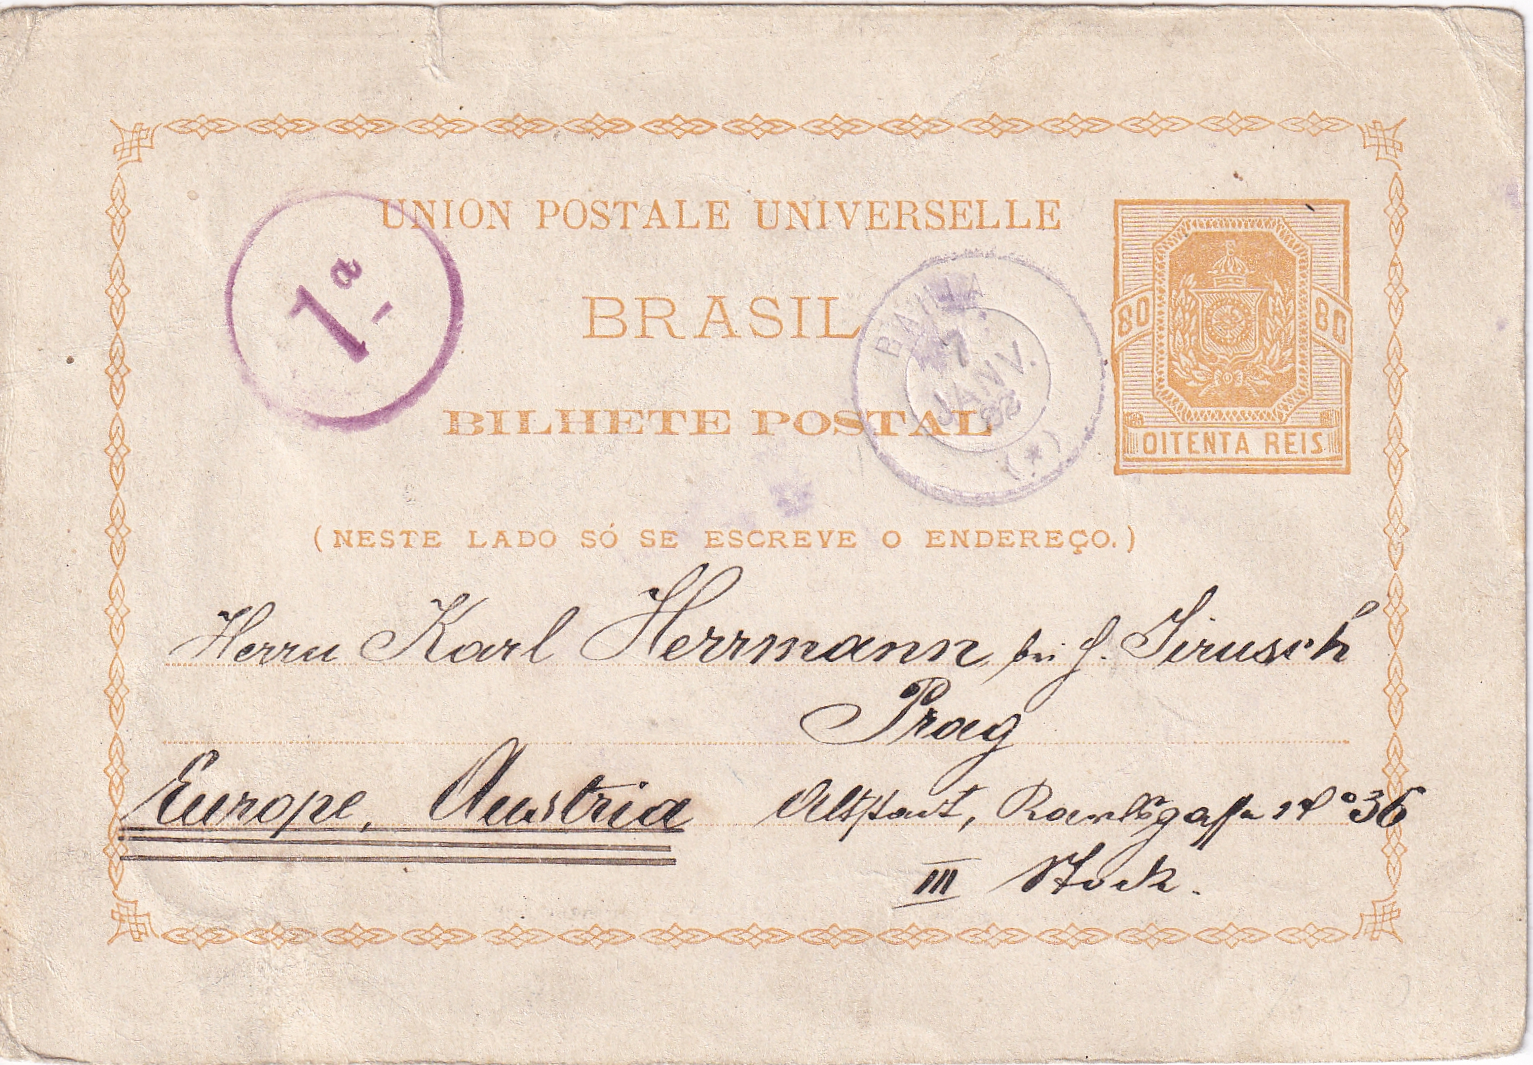 UNION POSTALE UNIVERSELLE
BRASIL
BILHETE POSTAL
(NESTE LADO SÓ SE ESCREVE O ENDEREÇO.)
1ª
BAHIA
7
JANV.
(*)
80 80
OITENTA REIS
Herrn Karl Herrmann bei J. Jirusch
Prag
Europe, Austria Altstadt, Karlsgasse Nº 36
III Stock.